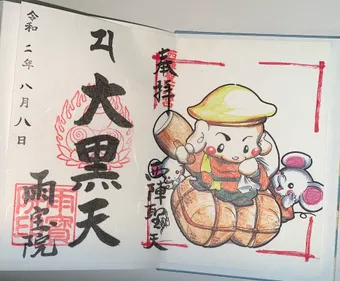 奉拝
西陣聖天
大黒天
雨宝院
令和二年八月八日